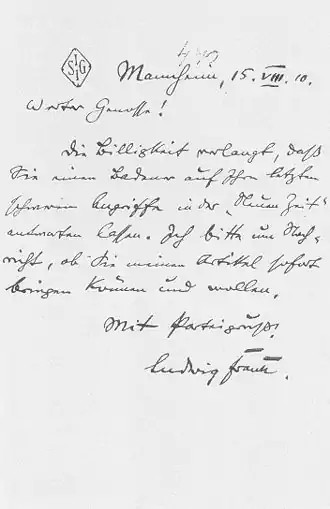 SIGI
Mannheim, 15. VIII. 10.
Werter Genosse!
Die Billigkeit erlangt, daß
Sie einen Badener auf Ihren letzten
schweren Angriffe in der "Neuen Zeit"
antworten lassen. Ich bitte um Nach-
richt, ob Sie meinen Artikel sofort
bringen können und wollen.
Mit Parteigruß!
Ludwig Frank.